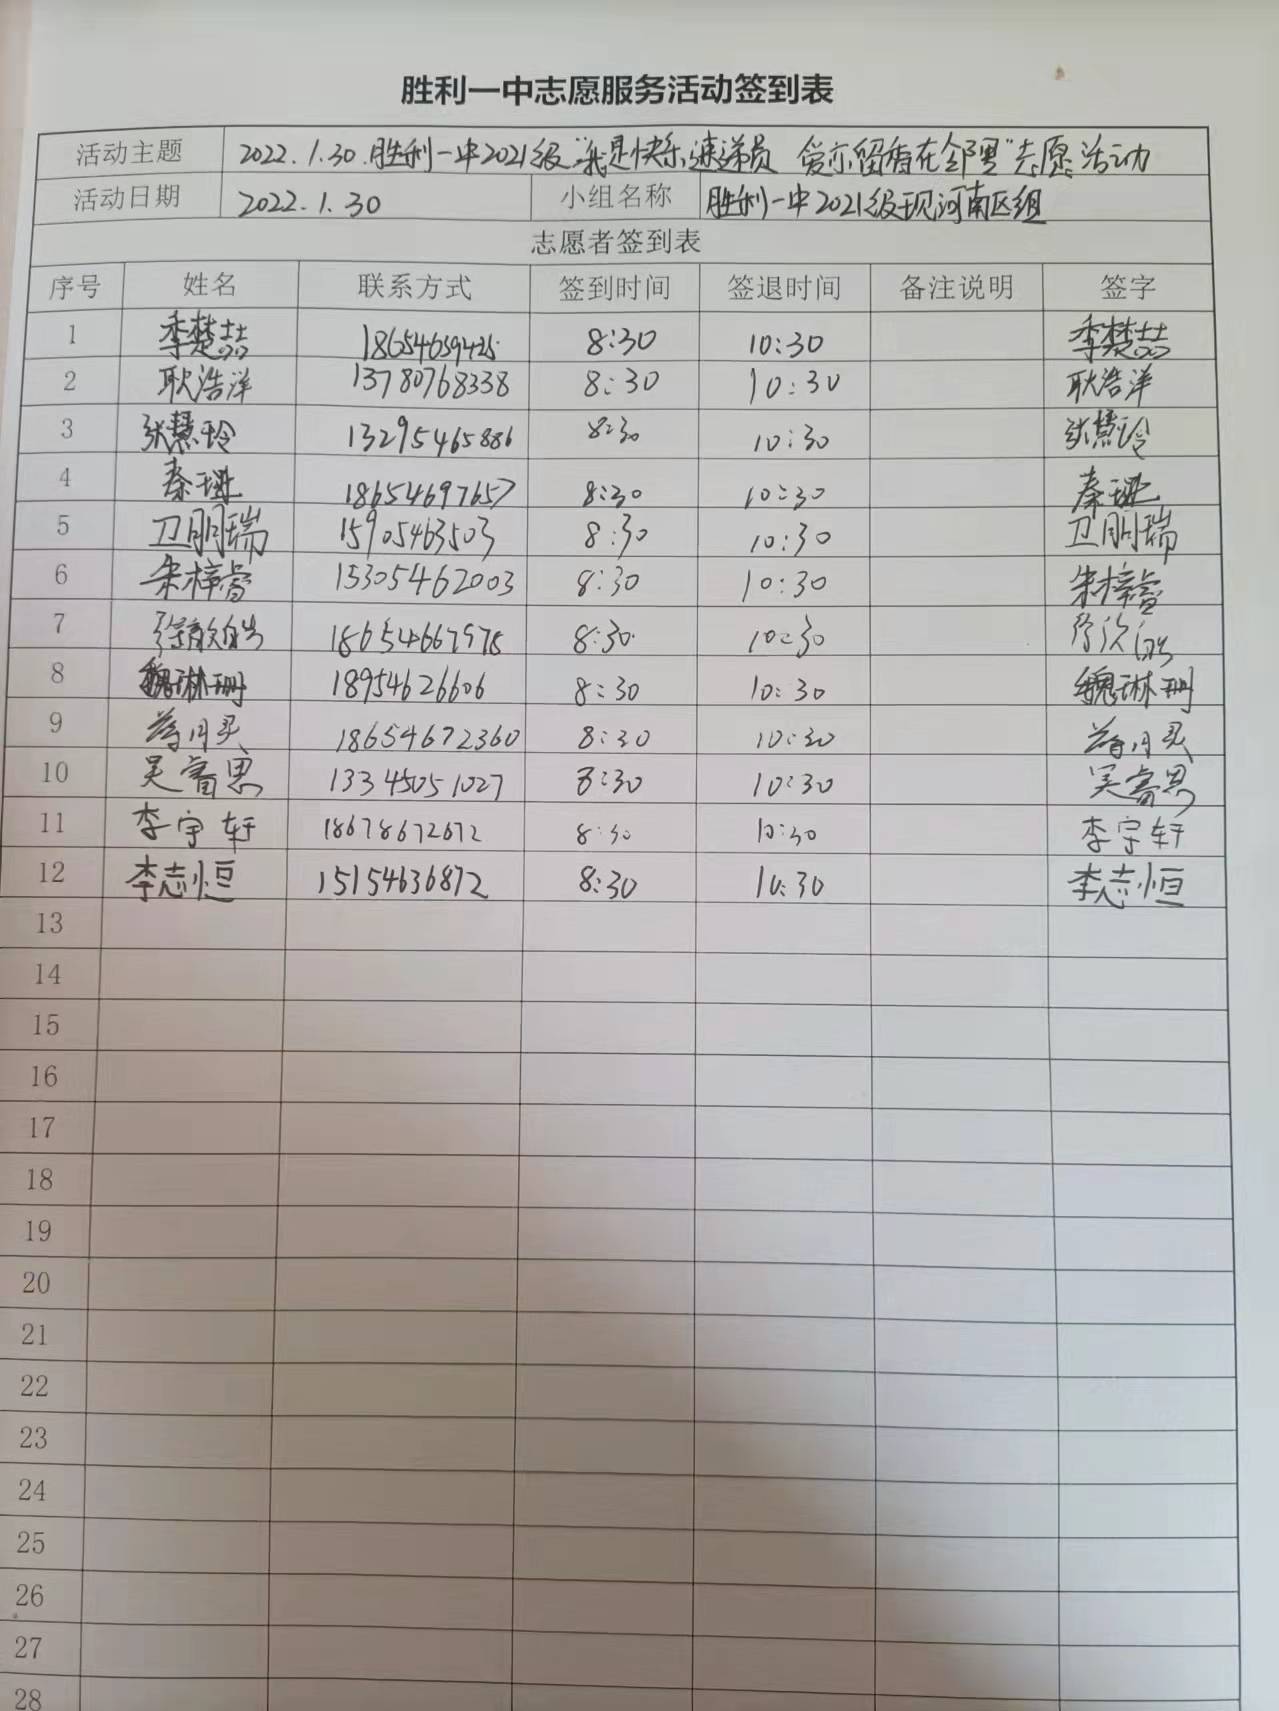 胜利一中志愿服务活动签到表
活动主题 2022.1.30.胜利一中2021级"我是快乐速递员 爱亦留香在邻里"志愿活动
活动日期 2022.1.30 小组名称 胜利一中2021级现河南区组
志愿者签到表
序号 姓名 联系方式 签到时间 签退时间 备注说明 签字
1 李楚喆 18654659425 8:30 10:30 李楚喆
2 耿浩洋 13780768338 8:30 10:30 耿浩洋
3 张慧玲 13295465886 8:30 10:30 张慧玲
4 秦 18654697657 8:30 10:30 秦
5 卫朋瑞 15905463503 8:30 10:30 卫朋瑞
6 朱梓睿 15305462003 8:30 10:30 朱梓睿
7 18654667978 8:30 10:30
8 魏琳珊 18954626606 8:30 10:30 魏琳珊
9 18654672360 8:30 10:30
10 吴睿思 13345051027 8:30 10:30 吴睿思
11 李宇轩 18678672672 8:30 10:30 李宇轩
12 李志恒 15154636872 8:30 10:30 李志恒
13
14
15
16
17
18
19
20
21
22
23
24
25
26
27
28